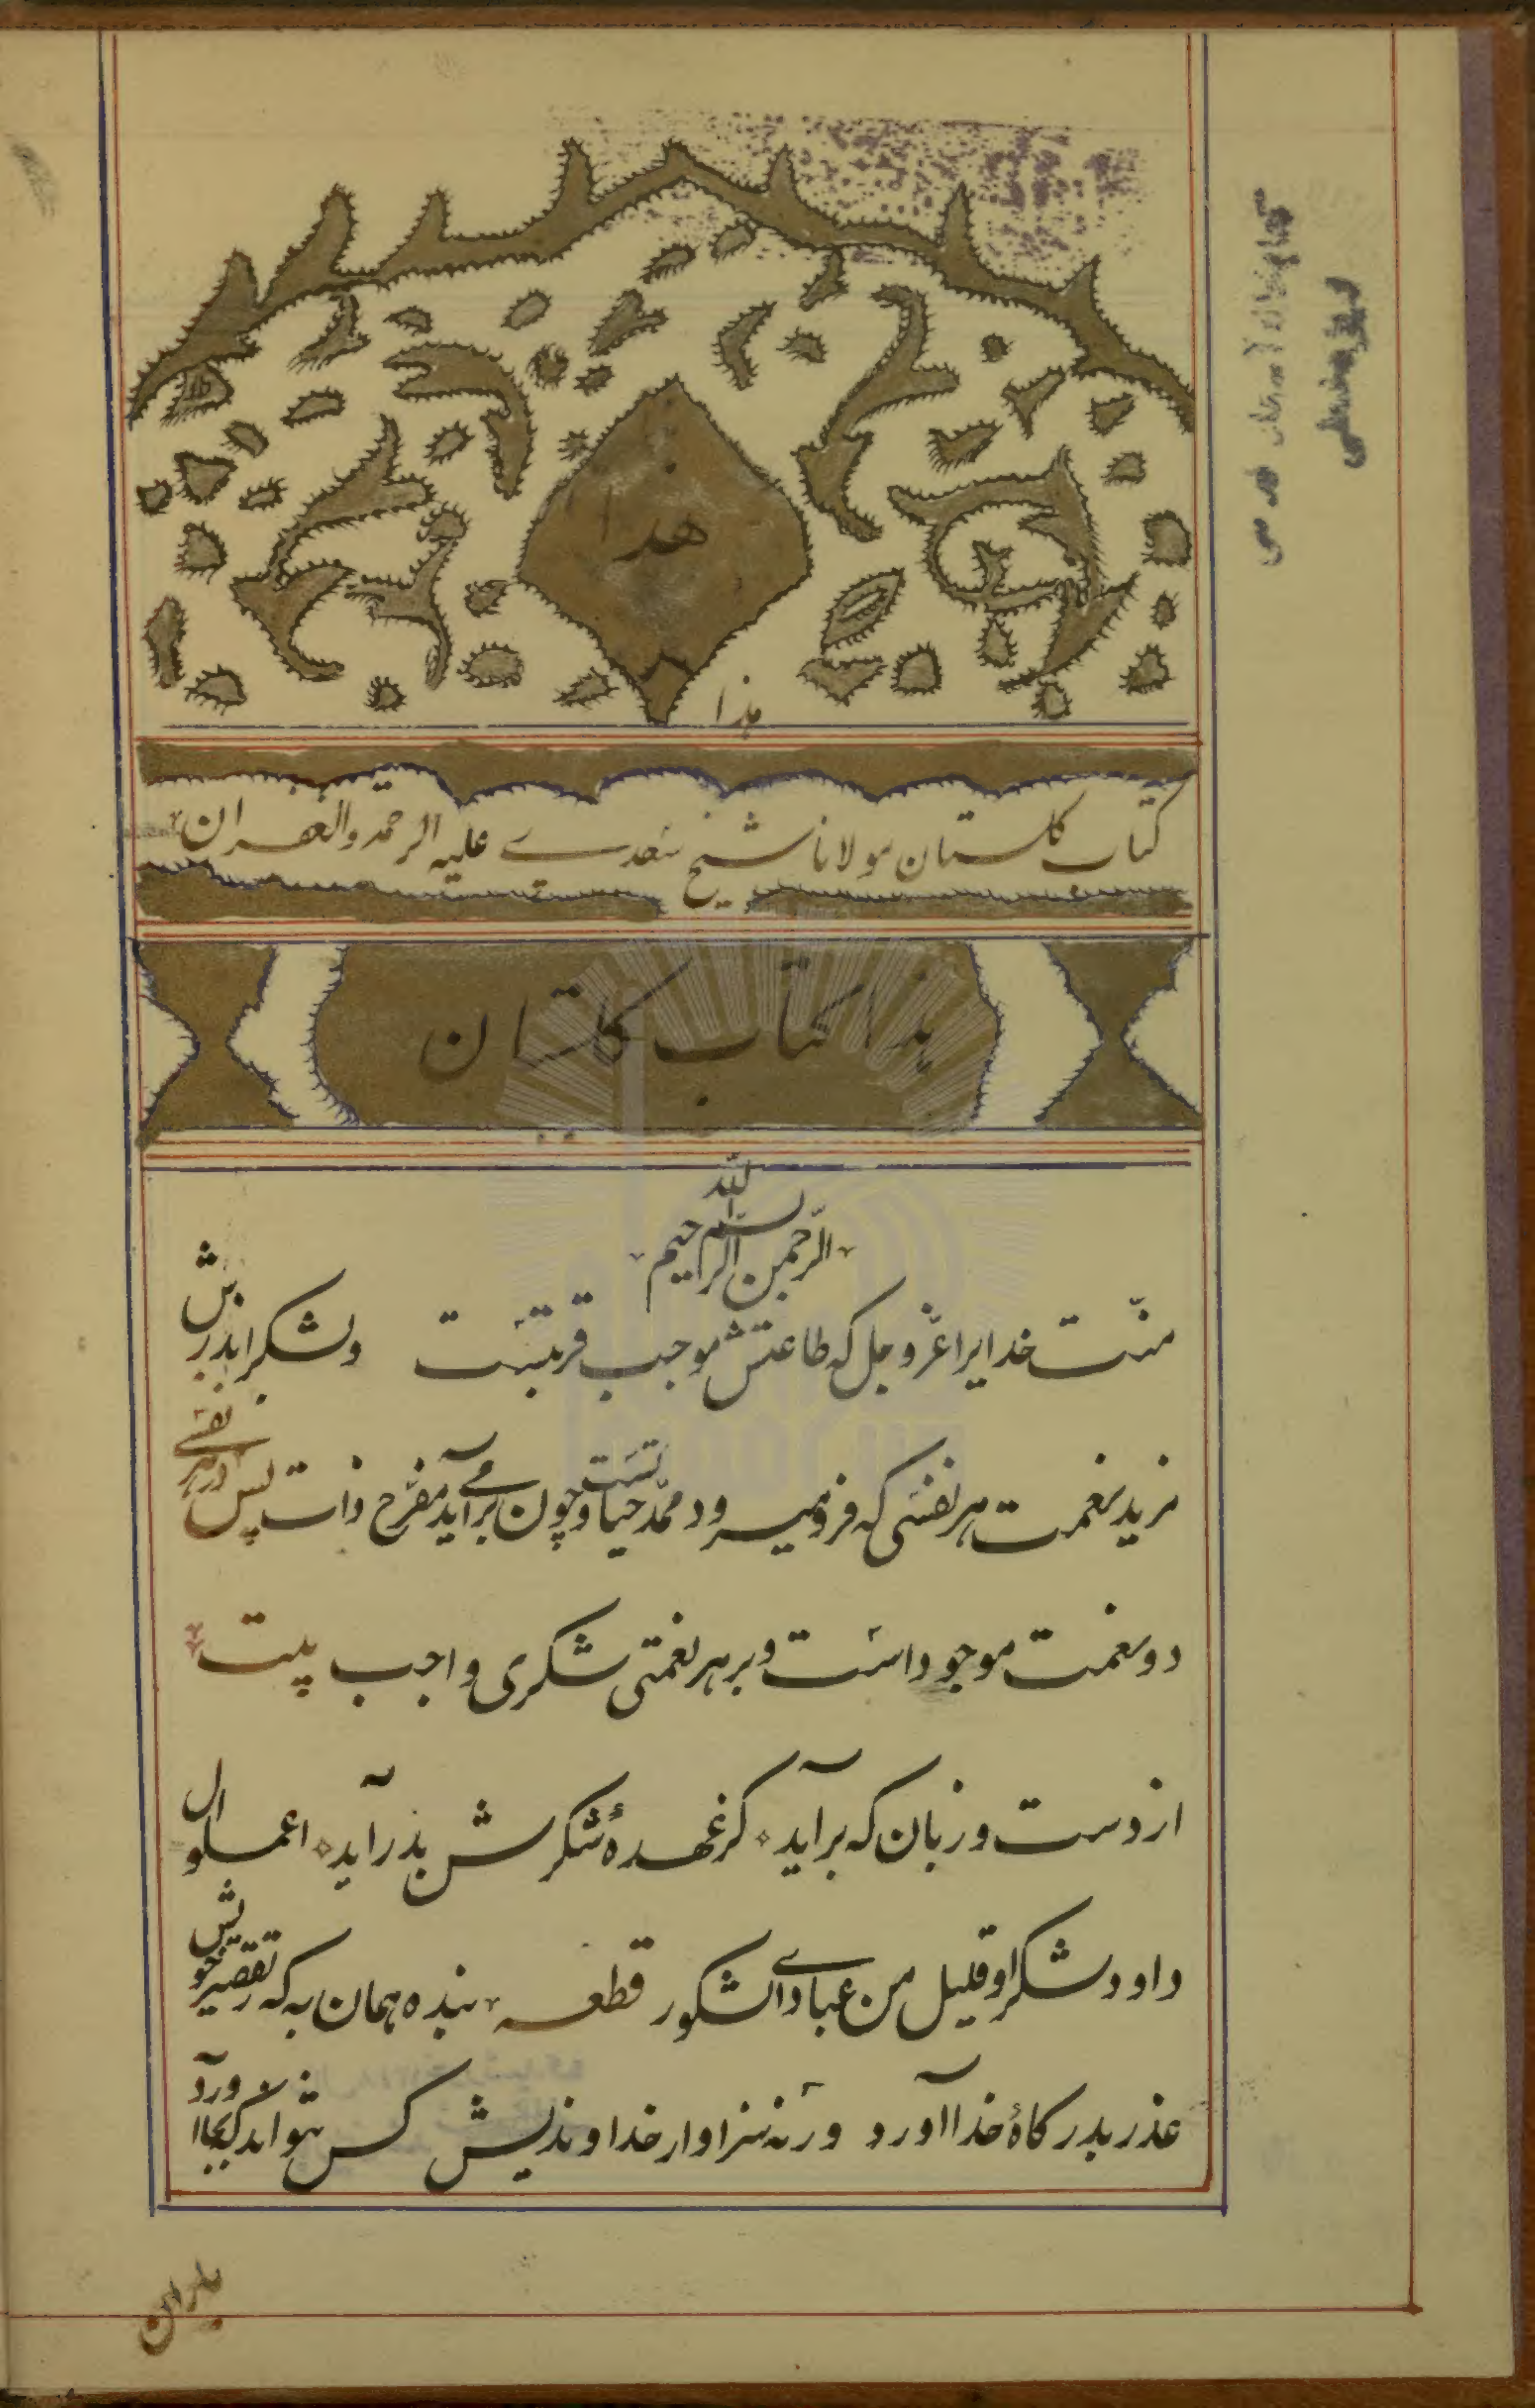 هذا
هذا
کتاب کلستان مولانا شیخ سعدے علیه الرحمة والغفران
هذا کتاب کلستان
بسم الله الرحمن الرحیم
منّت خدایرا عزّوجل که طاعتش موجب قربتست وبشکر اندرش
مزید نعمت هر نفسی که فرو میرود ممدّ حیاتست وچون برمے آید مفرّح ذات پس در هر نفسے
دو نعمت موجود است و بر هر نعمتی شکری واجب بیت
از دست و زبان که برآید کز عهدۀ شکرش بدرآید اعملو ال
داود شکرا وقلیل من عبادے الشکور قطعه بنده همان به که تقصیر خویش
عذر بدرکاۀ خدا آورد ورنه سزاوار خداوندیش کس نتواند که بجا آورد
باران